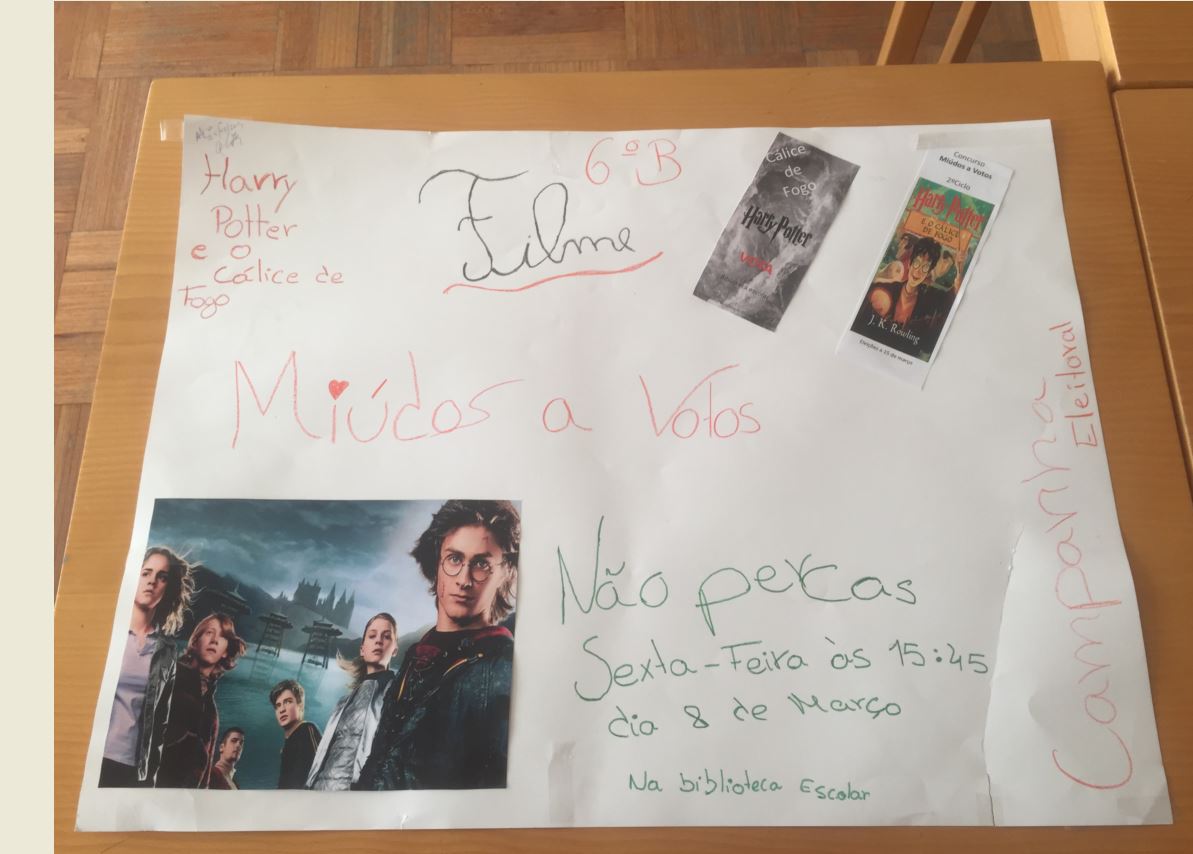 Harry
Potter
e o
Cálice de
Fogo
6ºB
Filme
Cálice
de
Fogo
Harry Potter
VOTA
Concurso
Miúdos a Votos
2ºCiclo
Harry Potter
E O CÁLICE
DE FOGO
J. K. Rowling
Eleições a 15 de março
Miúdos a Votos
Campanha
Eleitoral
Não percas
Sexta-Feira às 15:45
dia 8 de Março
Na biblioteca Escolar